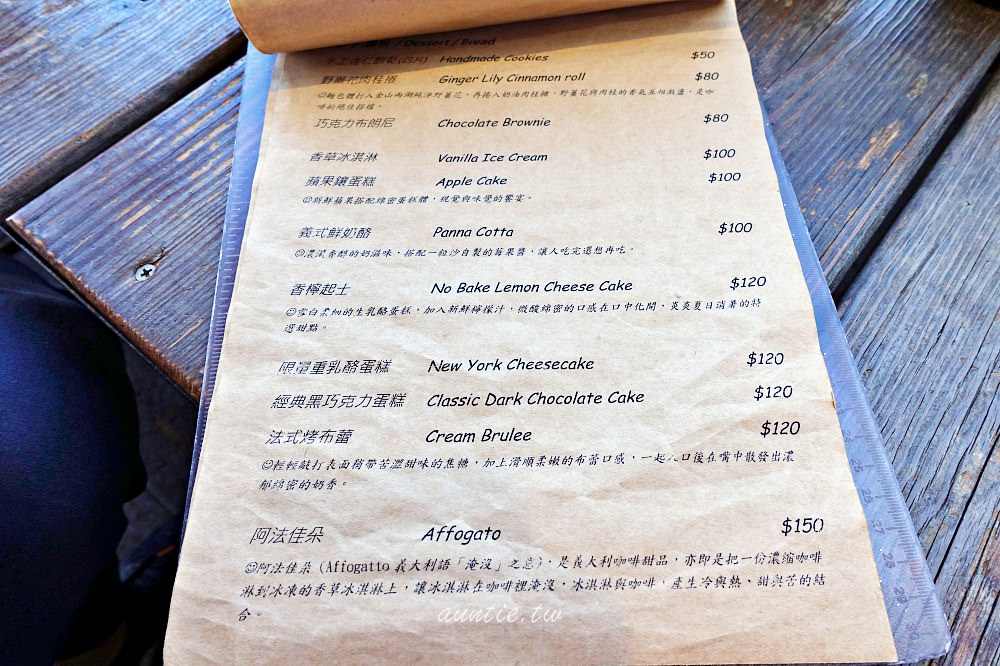 /Dessert/Bread
手工杏仁餅乾(四片) Handmade Cookies $50
野薑花肉桂捲 Ginger Lily Cinnamon roll $80
☺麵包體打入金山兩湖純淨野薑花，再捲入奶油肉桂糖，野薑花與肉桂的香氣互相激盪，是咖
啡的絕佳搭檔。
巧克力布朗尼 Chocolate Brownie $80
香草冰淇淋 Vanilla Ice Cream $100
蘋果鑲蛋糕 Apple Cake $100
☺新鮮蘋果搭配綿密蛋糕體，視覺與味覺的饗宴。
義式鮮奶酪 Panna Cotta $100
☺濃濃香醇的奶滋味，搭配一粒沙自製的莓果醬，讓人吃完還想再吃。
香檸起士 No Bake Lemon Cheese Cake $120
☺雪白柔細的生乳酪蛋糕，加入新鮮檸檬汁，微酸綿密的口感在口中化開，炎炎夏日消暑的特
選甜點。
限量重乳酪蛋糕 New York Cheesecake $120
經典黑巧克力蛋糕 Classic Dark Chocolate Cake $120
法式烤布蕾 Cream Brulee $120
☺輕輕敲打表面稍帶苦澀甜味的焦糖，加上滑順柔嫩的布蕾口感，一起入口後在嘴中散發出濃
郁綿密的奶香。
阿法佳朵 Affogato $150
☺阿法佳朵 (Affogatto 義大利語「淹沒」之意)，是義大利咖啡甜品，亦即是把一份濃縮咖啡
淋到冰凍的香草冰淇淋上，讓冰淇淋在咖啡裡淹沒，冰淇淋與咖啡，產生冷與熱、甜與苦的結
合。
auntie.tw